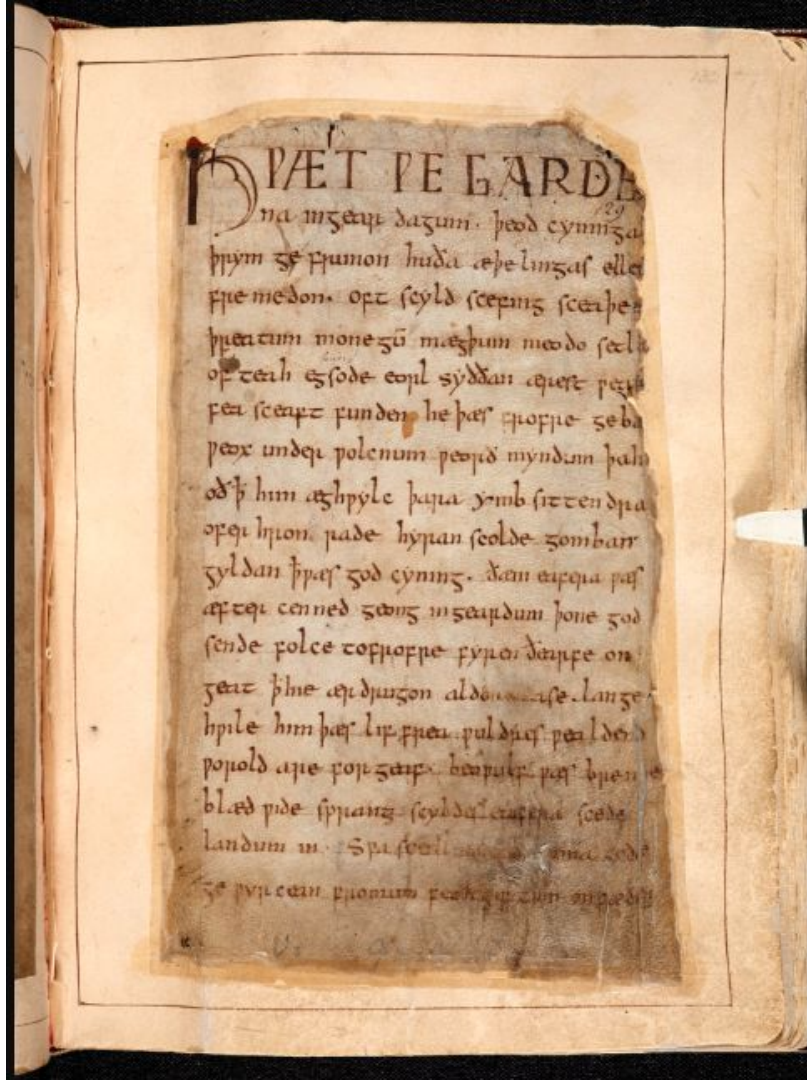 HǷÆT ǷE GARDE
na in gear dagum. þeod cyninga
þrym ge frunon huða æþelingas elle
fre medon. oft scyld scefing sceaþe
þreatum monegū mægþum meodo setla
of teah egsode eorl syððan ærest ƿea
fea sceaft funden he þæs frofre geba
ƿeox under ƿolcnum ƿeorð myndum þah
oð ꝥ him æghƿylc þara ymb sittendra
ofer hron rade hyran scolde gomban
gyldan ꝥ ƿæs god cyning. ðæm eafera ƿæs
æfter cenned geong in geardum þone god
sende folce to frofre fyren ðearfe on
geat ꝥ hie ær drugon aldor ase. lange
hƿile him þæs lif frea ƿuldres ƿealdend
ƿorold are for geaf. beoƿulf ƿæs breme
blæd ƿide sprang scyldes eafera scede
landum in. Sƿa sceal
ge ƿyrcean fromum feoh giftum on fæder
129